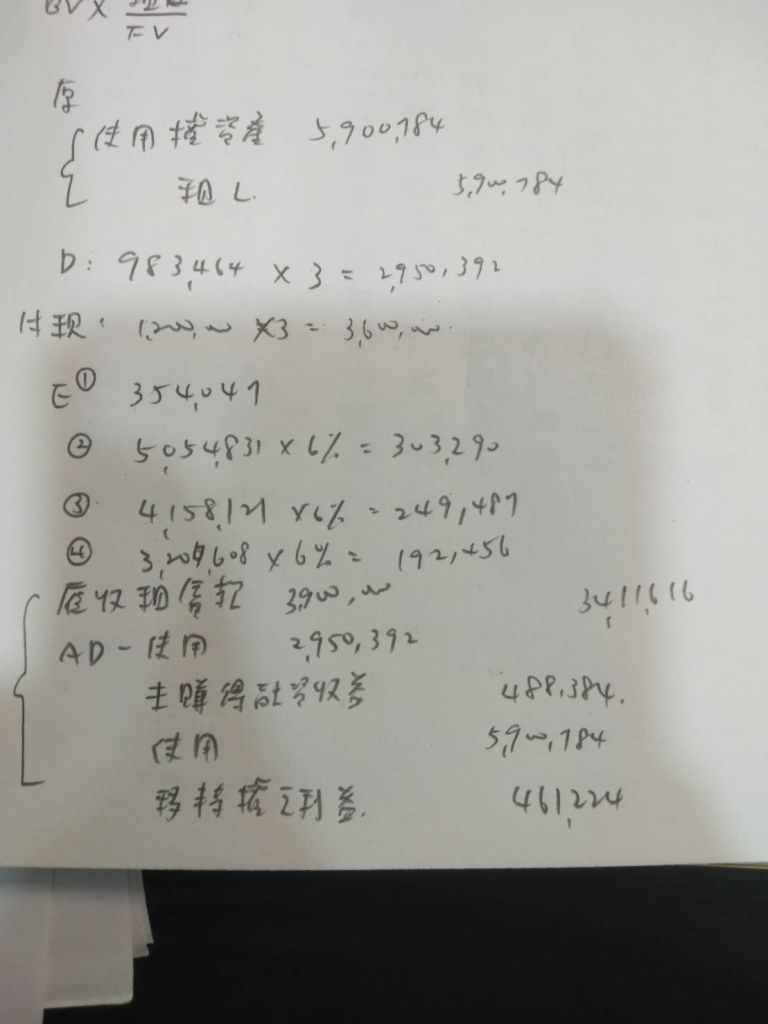 BV ×
FV
原
使用權資產 5,900,784
租L. 5,900,784
D: 983,464 × 3 = 2,950,392
付現: 1,200,000 × 3 = 3,600,000.
E① 354,047
② 5,054,831 × 6% = 303,290
③ 4,158,121 × 6% = 249,487
④ 3,207,608 × 6% = 192,456
應收租賃款 3,900,000 3,411,616
AD-使用 2,950,392
未賺得融資收益 488,384.
使用 5,900,784
移轉權之利益. 461,224